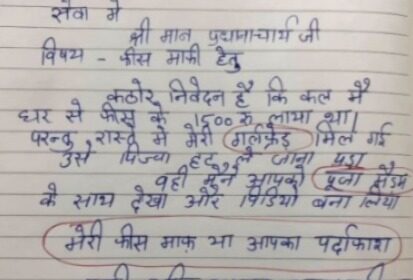 सेवा में
श्री मान प्रधानाचार्य जी
विषय - फीस माफी हेतु
कठोर निवेदन है कि कल मैं
घर से फीस के 1500 रु लाया था।
परन्तु रास्ते में मेरी गर्लफ्रेंड मिल गई
उसे पिज्जा हट ले जाना पड़ा
वही मैंने आपको पूजा मैडम
के साथ देखा और विडियो बना लिया
मेरी फीस माफ़ या आपका पर्दाफाश